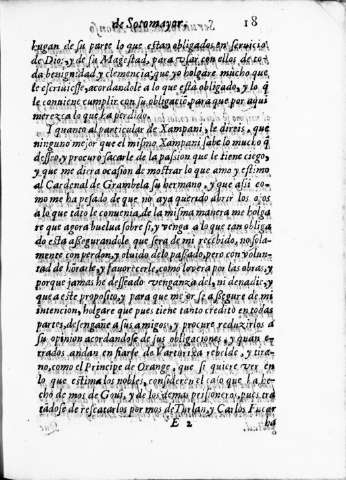 de Sotomayor. 18
hagan de su parte lo que estan obligados en seruicio
de Dios, y de su Magestad, para vsar con ellos de to-
da benignidad y clemencia, que yo holgare mucho que
le escriuiesse, acordandole a lo que està obligado, y lo q̃
le conuiene cumplir con su obligaciõ para que por aqui
merezca lo que ha perdido.
Y quanto al particular de Xampani, le direis, que
ninguno mejor que el mismo Xampani sabe lo mucho q̃
desseo, y procuro sacarle de la passion que le tiene ciego,
y que me diera ocasion de mostrar lo que amo y estimo
al Cardenal de Grambela su hermano, y que assi co-
mo me ha pesado de que no aya querido abrir los ojos
a lo que tãto le conuenia, de la misma manera me holga
re que agora buelua sobre si, y venga a lo que tan obliga
do esta assegurandole que sera de mi recebido, no sola-
mente con perdon, y oluido de lo passado, pero con volun-
tad de horarle, y fauorecerle, como lo vera por las obras, y
porque jamas he desseado vengança del, ni de nadie, y
que a este proposito, y para que mejor se assegure de mi
intencion, holgare que pues tiene tanto credito en todas
partes, desengañe a sus amigos, y procure reduzirlos a
su opinion acordandose de sus obligaciones, y quan er-
rados andan en fiarse de rebelde, y tira-
no, como el Principe de Orange, que si quiere ver en
lo que estima los nobles, consideren el caso que ha he-
cho de mos de Goui, y de los demas prisioneros, pues tra
tãdose de rescatarlos por mos de y Carlos Fucar
E 2 ha